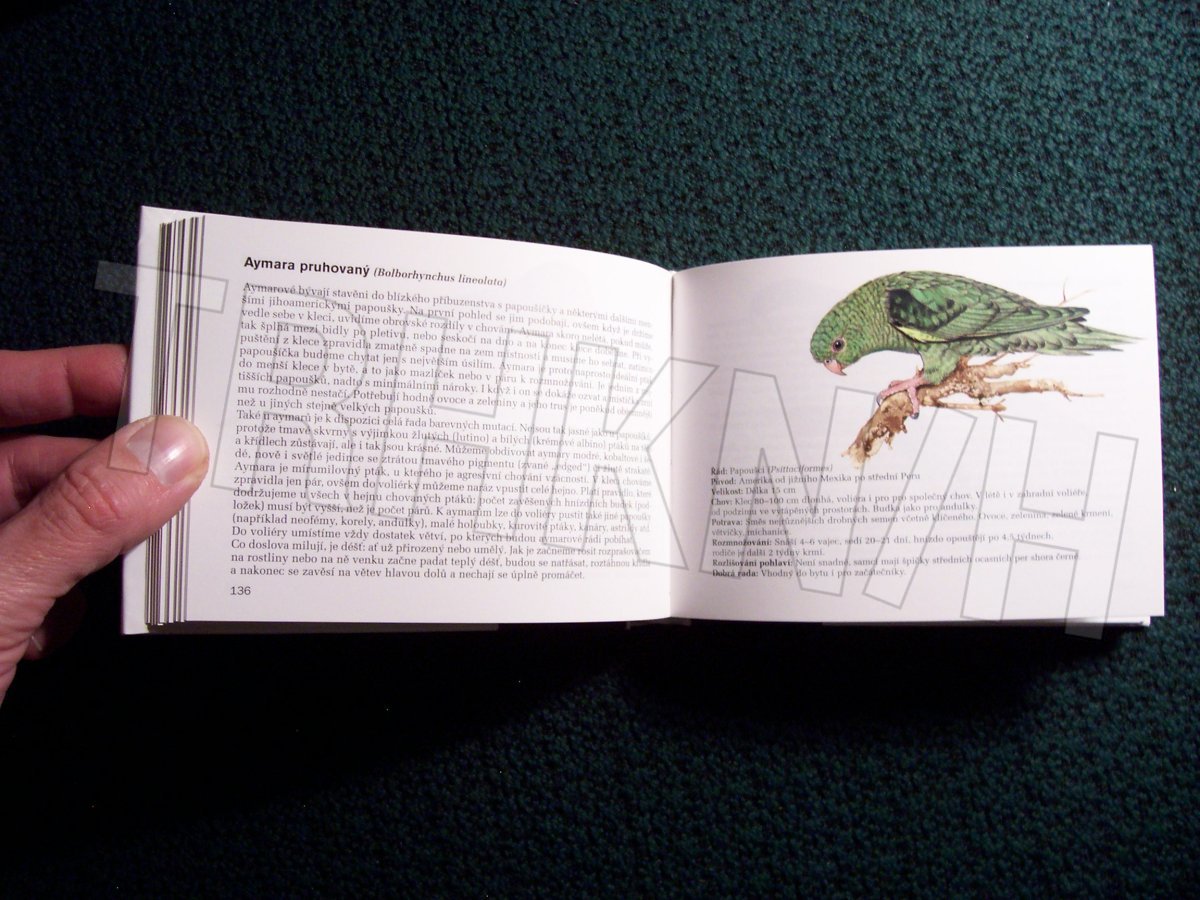 Aymara pruhovaný (Bolborhynchus lineolata)
Aymarové bývají stavěni do blízkého příbuzenstva s papoušíčky a některými dalšími men-
šími jihoamerickými papoušky. Na první pohled se jim podobají, ovšem když je držíme
vedle sebe v kleci, uvidíme obrovské rozdíly v chování. Aymara skoro nelétá, pokud může,
tak šplhá mezi bidly po pletivu, nebo seskočí na dno a na konec klece doběhne. Při vy-
puštění z klece zpravidla zmateně spadne na zem místnosti a musíme ho sebrat, zatímco
papoušíčka budeme chytat jen s největším úsilím. Aymara je proto naprosto ideální pták
do menší klece v bytě, a to jako mazlíček nebo v páru k rozmnožování. Je jedním z nej-
tišších papoušků, nadto s minimálními nároky. I když i on se dokáže ozvat a místička
mu rozhodně nestačí. Potřebují hodně ovoce a zeleniny a jeho trus je poněkud objemnější
než u jiných stejně velkých papoušků.
Také u aymarů je k dispozici celá řada barevných mutací. Nejsou tak jasné jako u papoušíků,
protože tmavé skvrny s výjimkou žlutých (lutino) a bílých (krémové albino) ptáků na těle
a křídlech zůstávají, ale i tak jsou krásné. Můžeme obdivovat aymary modré, kobaltové i še-
dé, nově i světlé jedince se ztrátou tmavého pigmentu (zvané „edged“) a žlutě strakaté.
Aymara je mírumilovný pták, u kterého je agresivní chování vzácností. V kleci chováme
zpravidla jen pár, ovšem do voliérky můžeme naráz vpustit celé hejno. Platí pravidlo, které
dodržujeme u všech v hejnu chovaných ptáků: počet zavěšených hnízdních budek (pod-
ložek) musí být vyšší, než je počet párů. K aymarům lze do voliéry pustit také jiné papoušky
(například neofémy, korely, andulky), malé holoubky, kurovité ptáky, kanáry, astrildy atd.
Do voliéry umístíme vždy dostatek větví, po kterých budou aymarové rádi pobíhat.
Co doslova milují, je déšť: ať už přirozený nebo umělý. Jak je začneme rosit rozprašovačem
na rostliny nebo na ně venku začne padat teplý déšť, budou se natřásat, roztáhnou křídla
a nakonec se zavěsí na větev hlavou dolů a nechají se úplně promáčet.
136
Řád: Papoušci (Psittaciformes)
Původ: Amerika od jižního Mexika po střední Peru
Velikost: Délka 15 cm
Chov: Klec 80–100 cm dlouhá, voliéra i pro pro společný chov. V létě i v zahradní voliéře,
od podzimu ve vytápěných prostorách. Budka jako pro andulky.
Potrava: Směs nejrůznějších drobných semen včetně klíčeného. Ovoce, zelenina, zelené krmení,
větvičky, míchanice.
Rozmnožování: Snáší 4–6 vajec, sedí 20–21 dní, hnízdo opouštějí po 4,5 týdnech,
rodiče je další 2 týdny krmí.
Rozlišování pohlaví: Není snadné, samci mají špičky středních ocasních per shora černé
Dobrá rada: Vhodný do bytu i pro začátečníky.
TRHKNIH